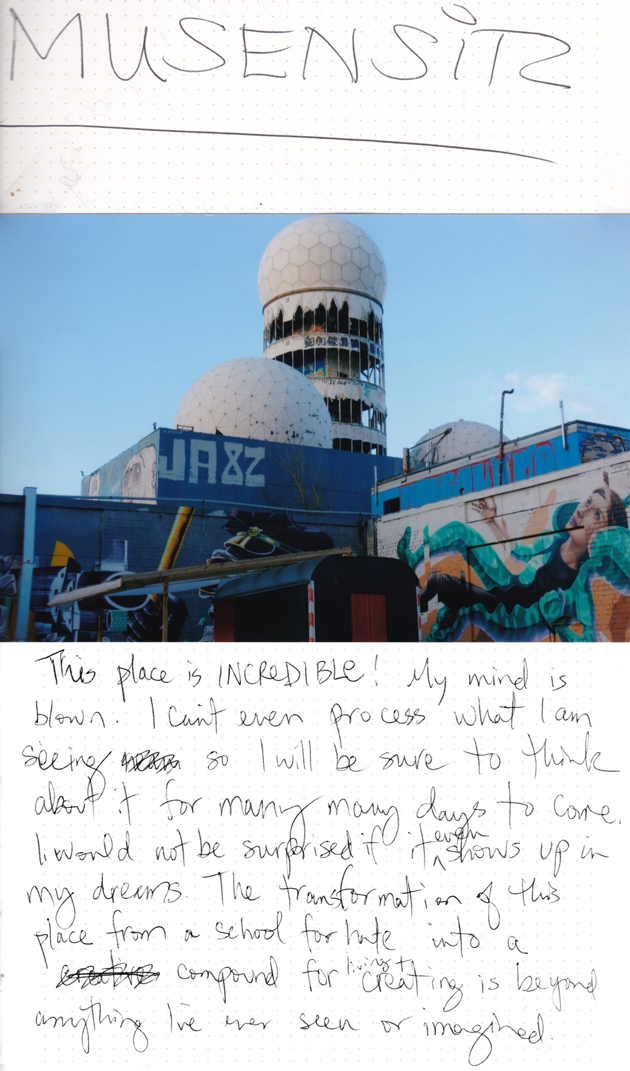 MUSENSITZ
JA8Z
This place is INCREDIBLE! My mind is
blown. I can't even process what I am
seeing so I will be sure to think
about it for many many days to come.
I would not be surprised if it even shows up in
my dreams. The transformation of this
place from a school for hate into a
compound for living + creating is beyond
anything I've ever seen or imagined.